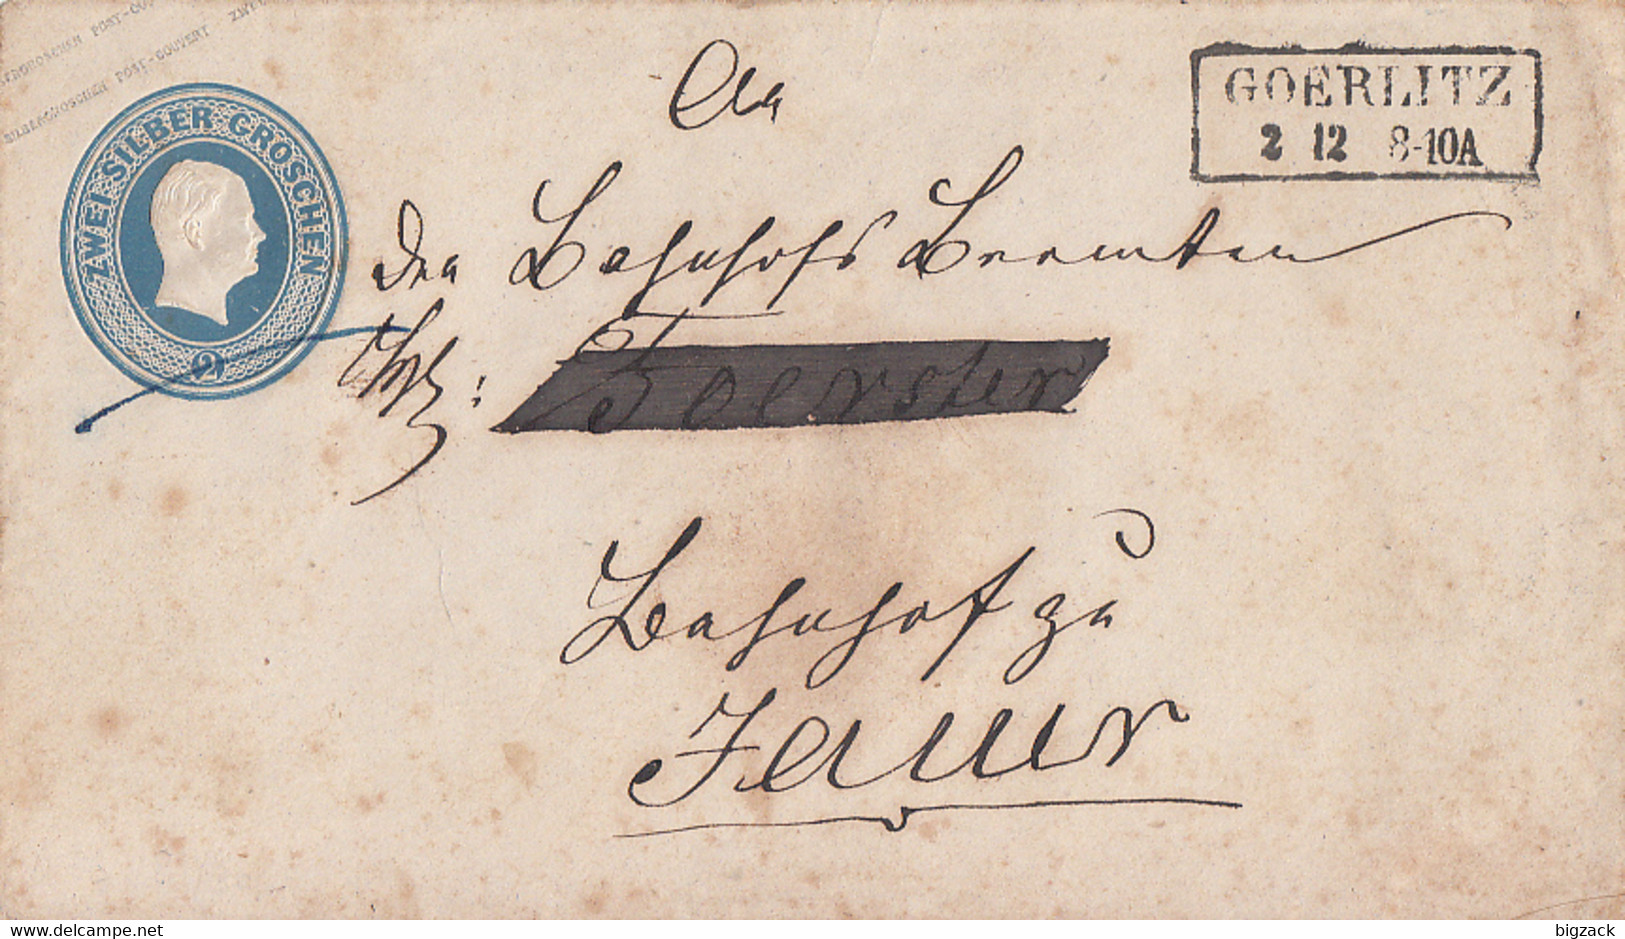 SILBERGROSCHEN POST-COUVERT ZWEI
ZWEI·SILBER·GROSCHEN
2
GOERLITZ
2 12 8-10A
An
den Bahnhofs Beamten
Foerster
Bahnhof zu
Jauer
delcampe.net
bigzack